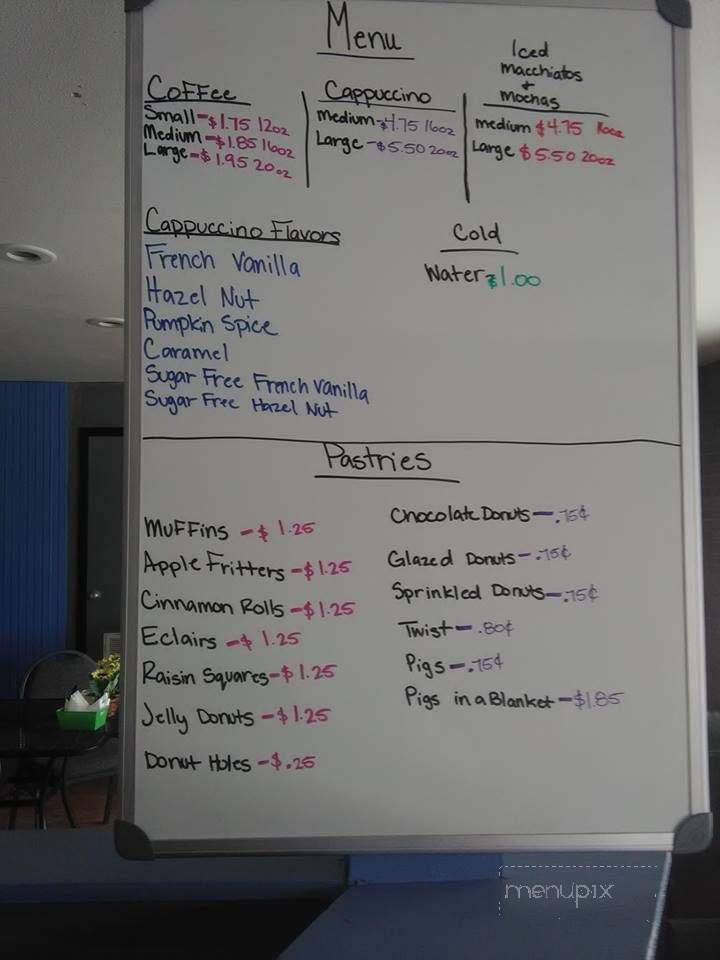 Menu
Coffee
Small-$1.75 12oz
Medium-$1.85 16oz
Large-$1.95 20oz
Cappuccino
Medium-$4.75 16oz
Large-$5.50 20oz
Iced
Macchiatos
+
Mochas
Medium $4.75 16oz
Large $5.50 20oz
Cappuccino Flavors
French Vanilla
Hazel Nut
Pumpkin Spice
Caramel
Sugar Free French Vanilla
Sugar Free Hazel Nut
Cold
Water $1.00
Pastries
Muffins -$ 1.25
Apple Fritters -$1.25
Cinnamon Rolls -$1.25
Eclairs -$ 1.25
Raisin Squares-$1.25
Jelly Donuts -$1.25
Donut Holes -$.25
Chocolate Donuts-.75¢
Glazed Donuts-.75¢
Sprinkled Donuts-.75¢
Twist-.80¢
Pigs-.75¢
Pigs in a Blanket-$1.85
menupix